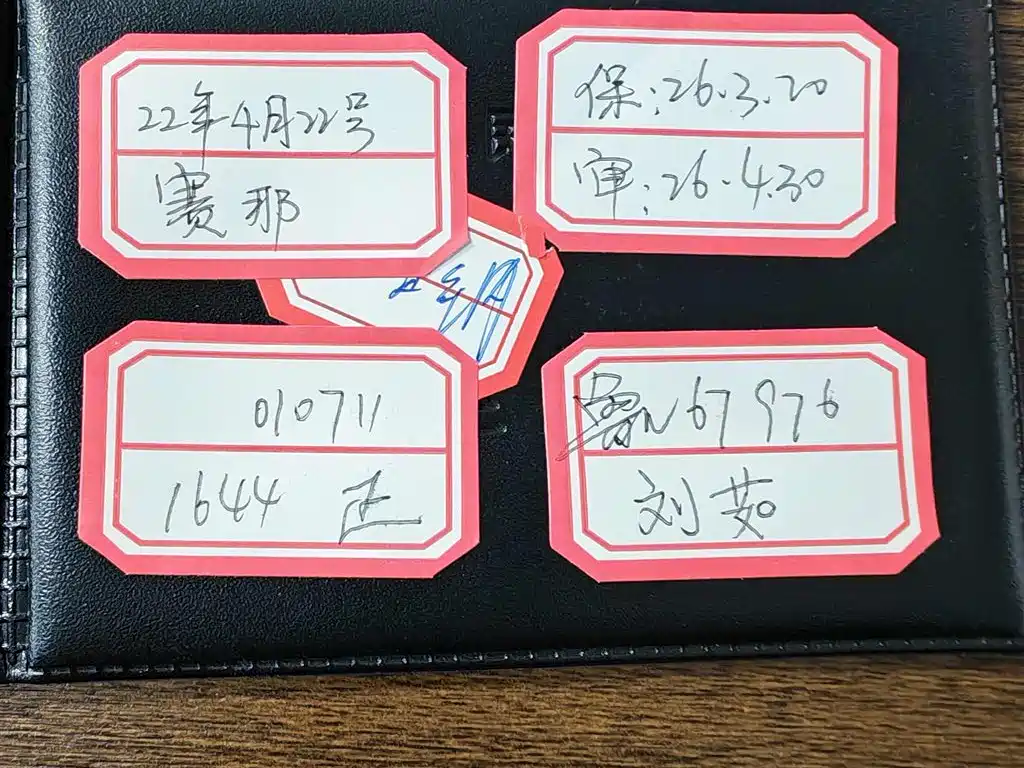 22年4月22号
赛那
保:26.3.20
审:26.4.30
010711
1644 正
粤N67976
刘茹